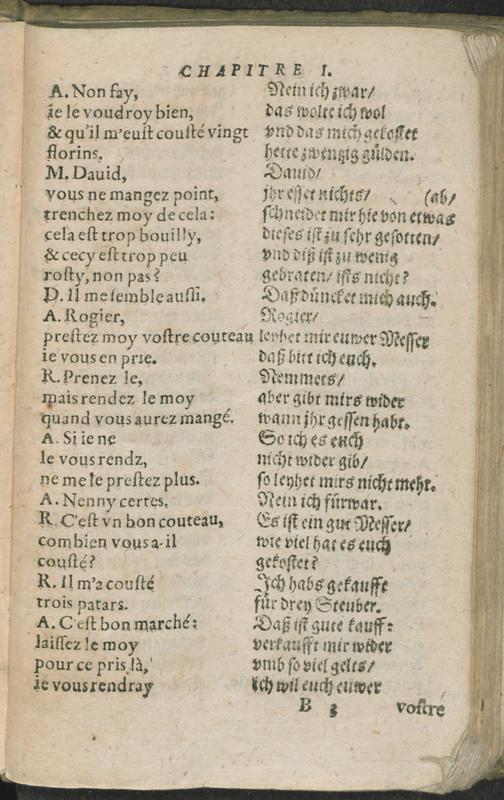 CHAPITRE I.
A. Non fay,
ie le voudroy bien,
& qu'il m'eust cousté vingt
florins.
M. Dauid,
vous ne mangez point,
trenchez moy de cela:
cela est trop bouilly,
& cecy est trop peu
rosty, non pas?
D. Il me semble aussi.
A. Rogier,
prestez moy vostre couteau
ie vous en prie.
R. Prenez le,
mais rendez le moy
quand vous aurez mangé.
A. Si ie ne
le vous rendz,
ne me le prestez plus.
A. Nenny certes.
R. C'est vn bon couteau,
combien vous a-il
cousté?
R. Il m'a cousté
trois patars.
A. C'est bon marché:
laissez le moy
pour ce pris là,
ie vous rendray
Nein ich zwar/
das wolte ich wol
vnd das mich gekostet
hette zwentzig gülden.
Dauid/
jhr esset nichts/ (ab/
schneidet mir hie von etwas
dieses ist zu sehr gesotten/
vnd diß ist zu wenig
gebraten/ ists nicht?
Daß düncket mich auch.
Rogier/
leyhet mir euwer Messer
daß bitt ich euch.
Nemmets/
aber gibt mirs wider
wann jhr gessen habt.
So ich es euch
nicht wider gib/
so leyhet mirs nicht mehr.
Nein ich fürwar.
Es ist ein gut Messer/
wie viel hat es euch
gekostet?
Ich habs gekaufft
für drey Steuber.
Daß ist gute kauff:
verkaufft mir wider
vmb so viel gelts/
ich wil euch euwer
B 3 vostre